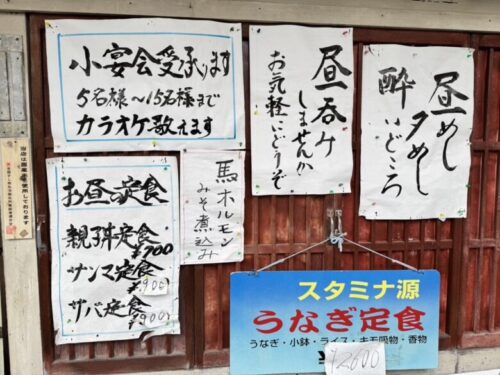 小宴会受承ります
5名様〜15名様まで
カラオケ歌えます
昼呑み
しませんか
お気軽にどうぞ
昼めし
夕めし
酔いどころ
お昼の定食
親子丼定食
¥700
サンマ定食
¥900
サバ定食
¥900
馬ホルモン
みそ煮込み
スタミナ源
うなぎ定食
うなぎ・小鉢・ライス・キモ吸物・香物
¥2600